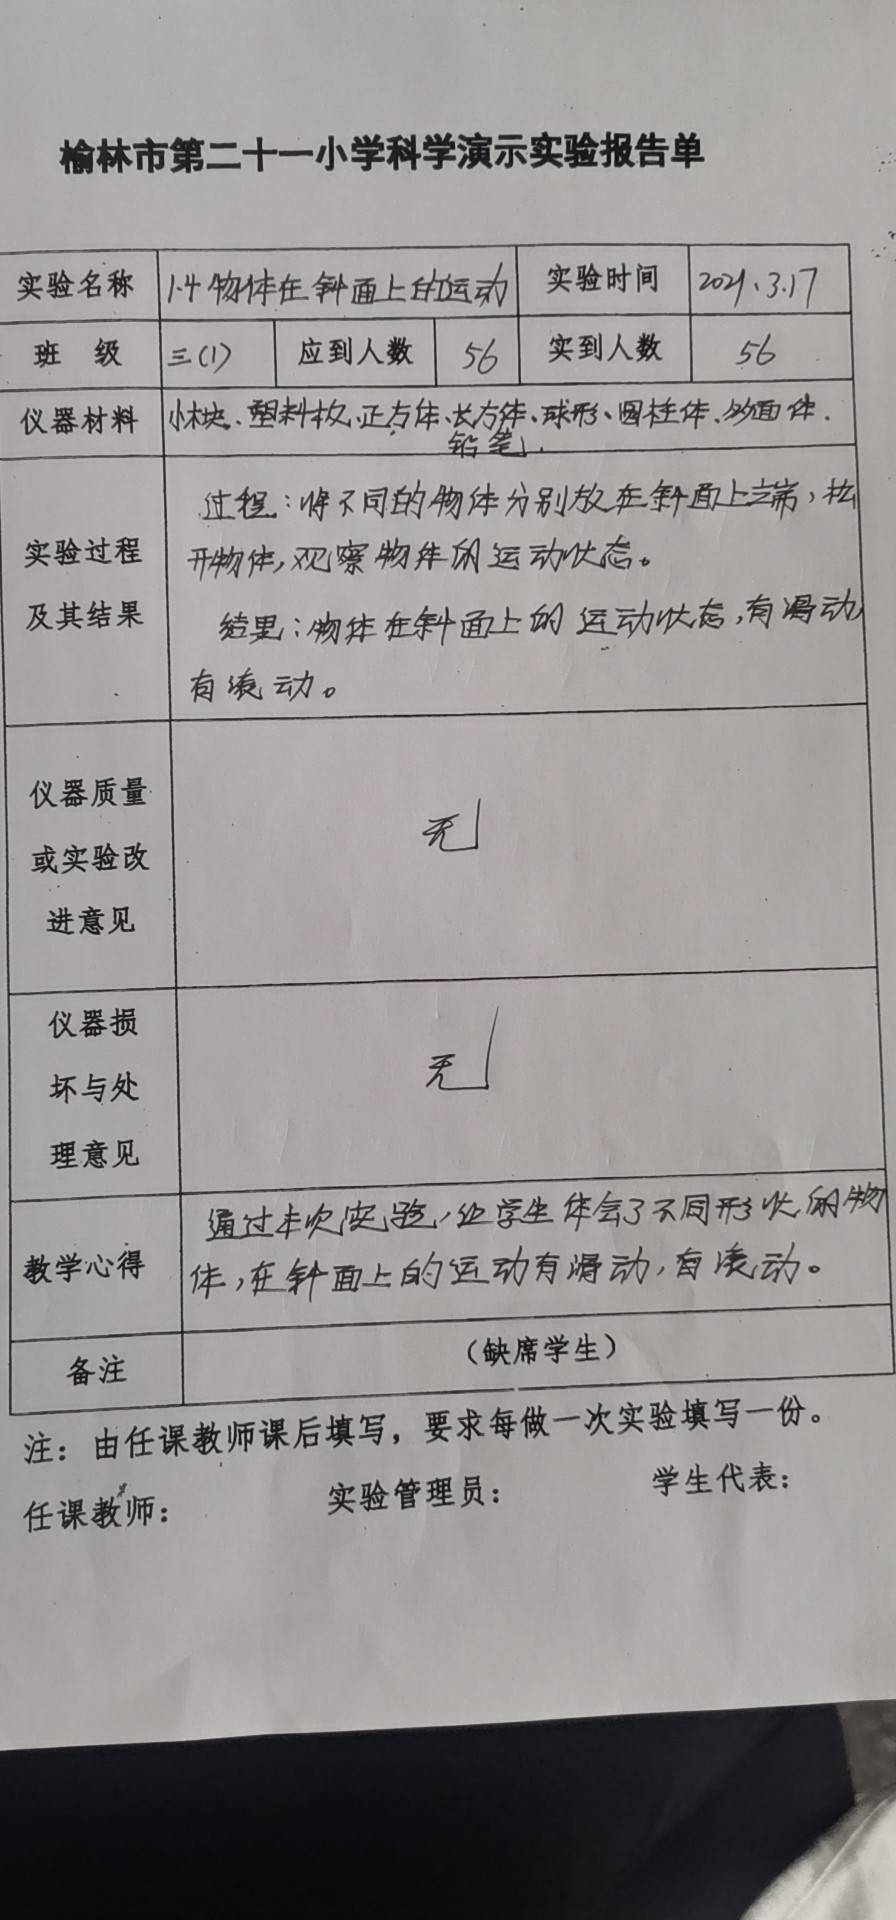 榆林市第二十一小学科学演示实验报告单
实验名称 1.4 物体在斜面上的运动 实验时间 2021.3.17
班 级 三(1) 应到人数 56 实到人数 56
仪器材料 小木块、塑料板、正方体、长方体、球形、圆柱体、多面体.
铅笔.
过程:将不同的物体分别放在斜面上端,松
实验过程 开物体,观察物体的运动状态。
及其结果 结果:物体在斜面上的运动状态,有滑动
有滚动。
仪器质量
或实验改 无
进意见
仪器损
坏与处 无
理意见
通过本次实验,让学生体会了不同形状的物
教学心得 体,在斜面上的运动有滑动,有滚动。
备注 (缺席学生)
注:由任课教师课后填写,要求每做一次实验填写一份。
任课教师: 实验管理员: 学生代表: